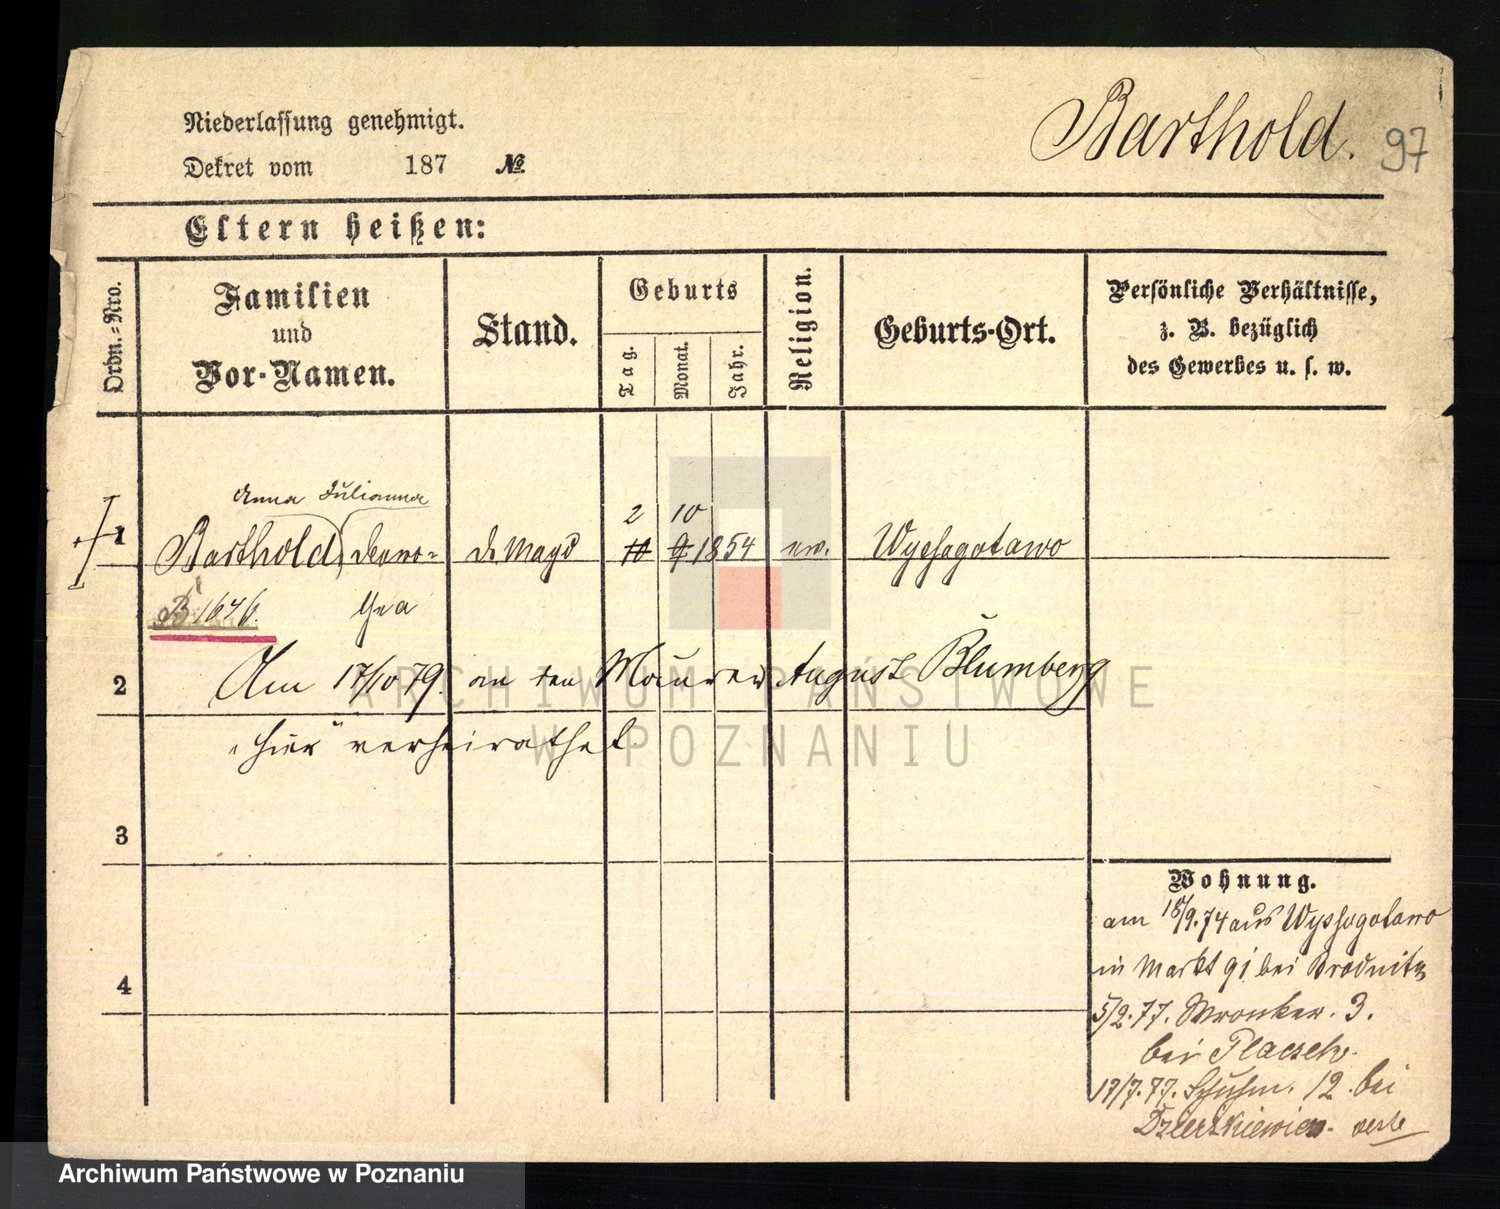 Niederlassung genehmigt.
Barthold. 97
Dekret vom 187 №
Eltern heißen:
Ordn.-Nro.
Familien
und
Vor-Namen.
Stand.
Geburts
Tag.
Monat.
Jahr.
Religion.
Geburts-Ort.
Persönliche Verhältnisse,
z. B. bezüglich
des Gewerbes u. s. w.
Anna Julianna
2 10
1 Barthold, d. Magd 9 1854 ev. Wyssogotawo
B 1646.
2 Am 17/10 79. an den Maurer August Blumberg
"hier" verheirathet
3
4
Wohnung.
am 18/9.74 aus Wyssogotawo
in Markt 91 bei Brodnitz
5/2.77. Wronker. 3.
bei Placsek.
17/7.77. Schuhm. 12. bei
ARCHIWUM PAŃSTWOWE
W POZNANIU
Archiwum Państwowe w Poznaniu